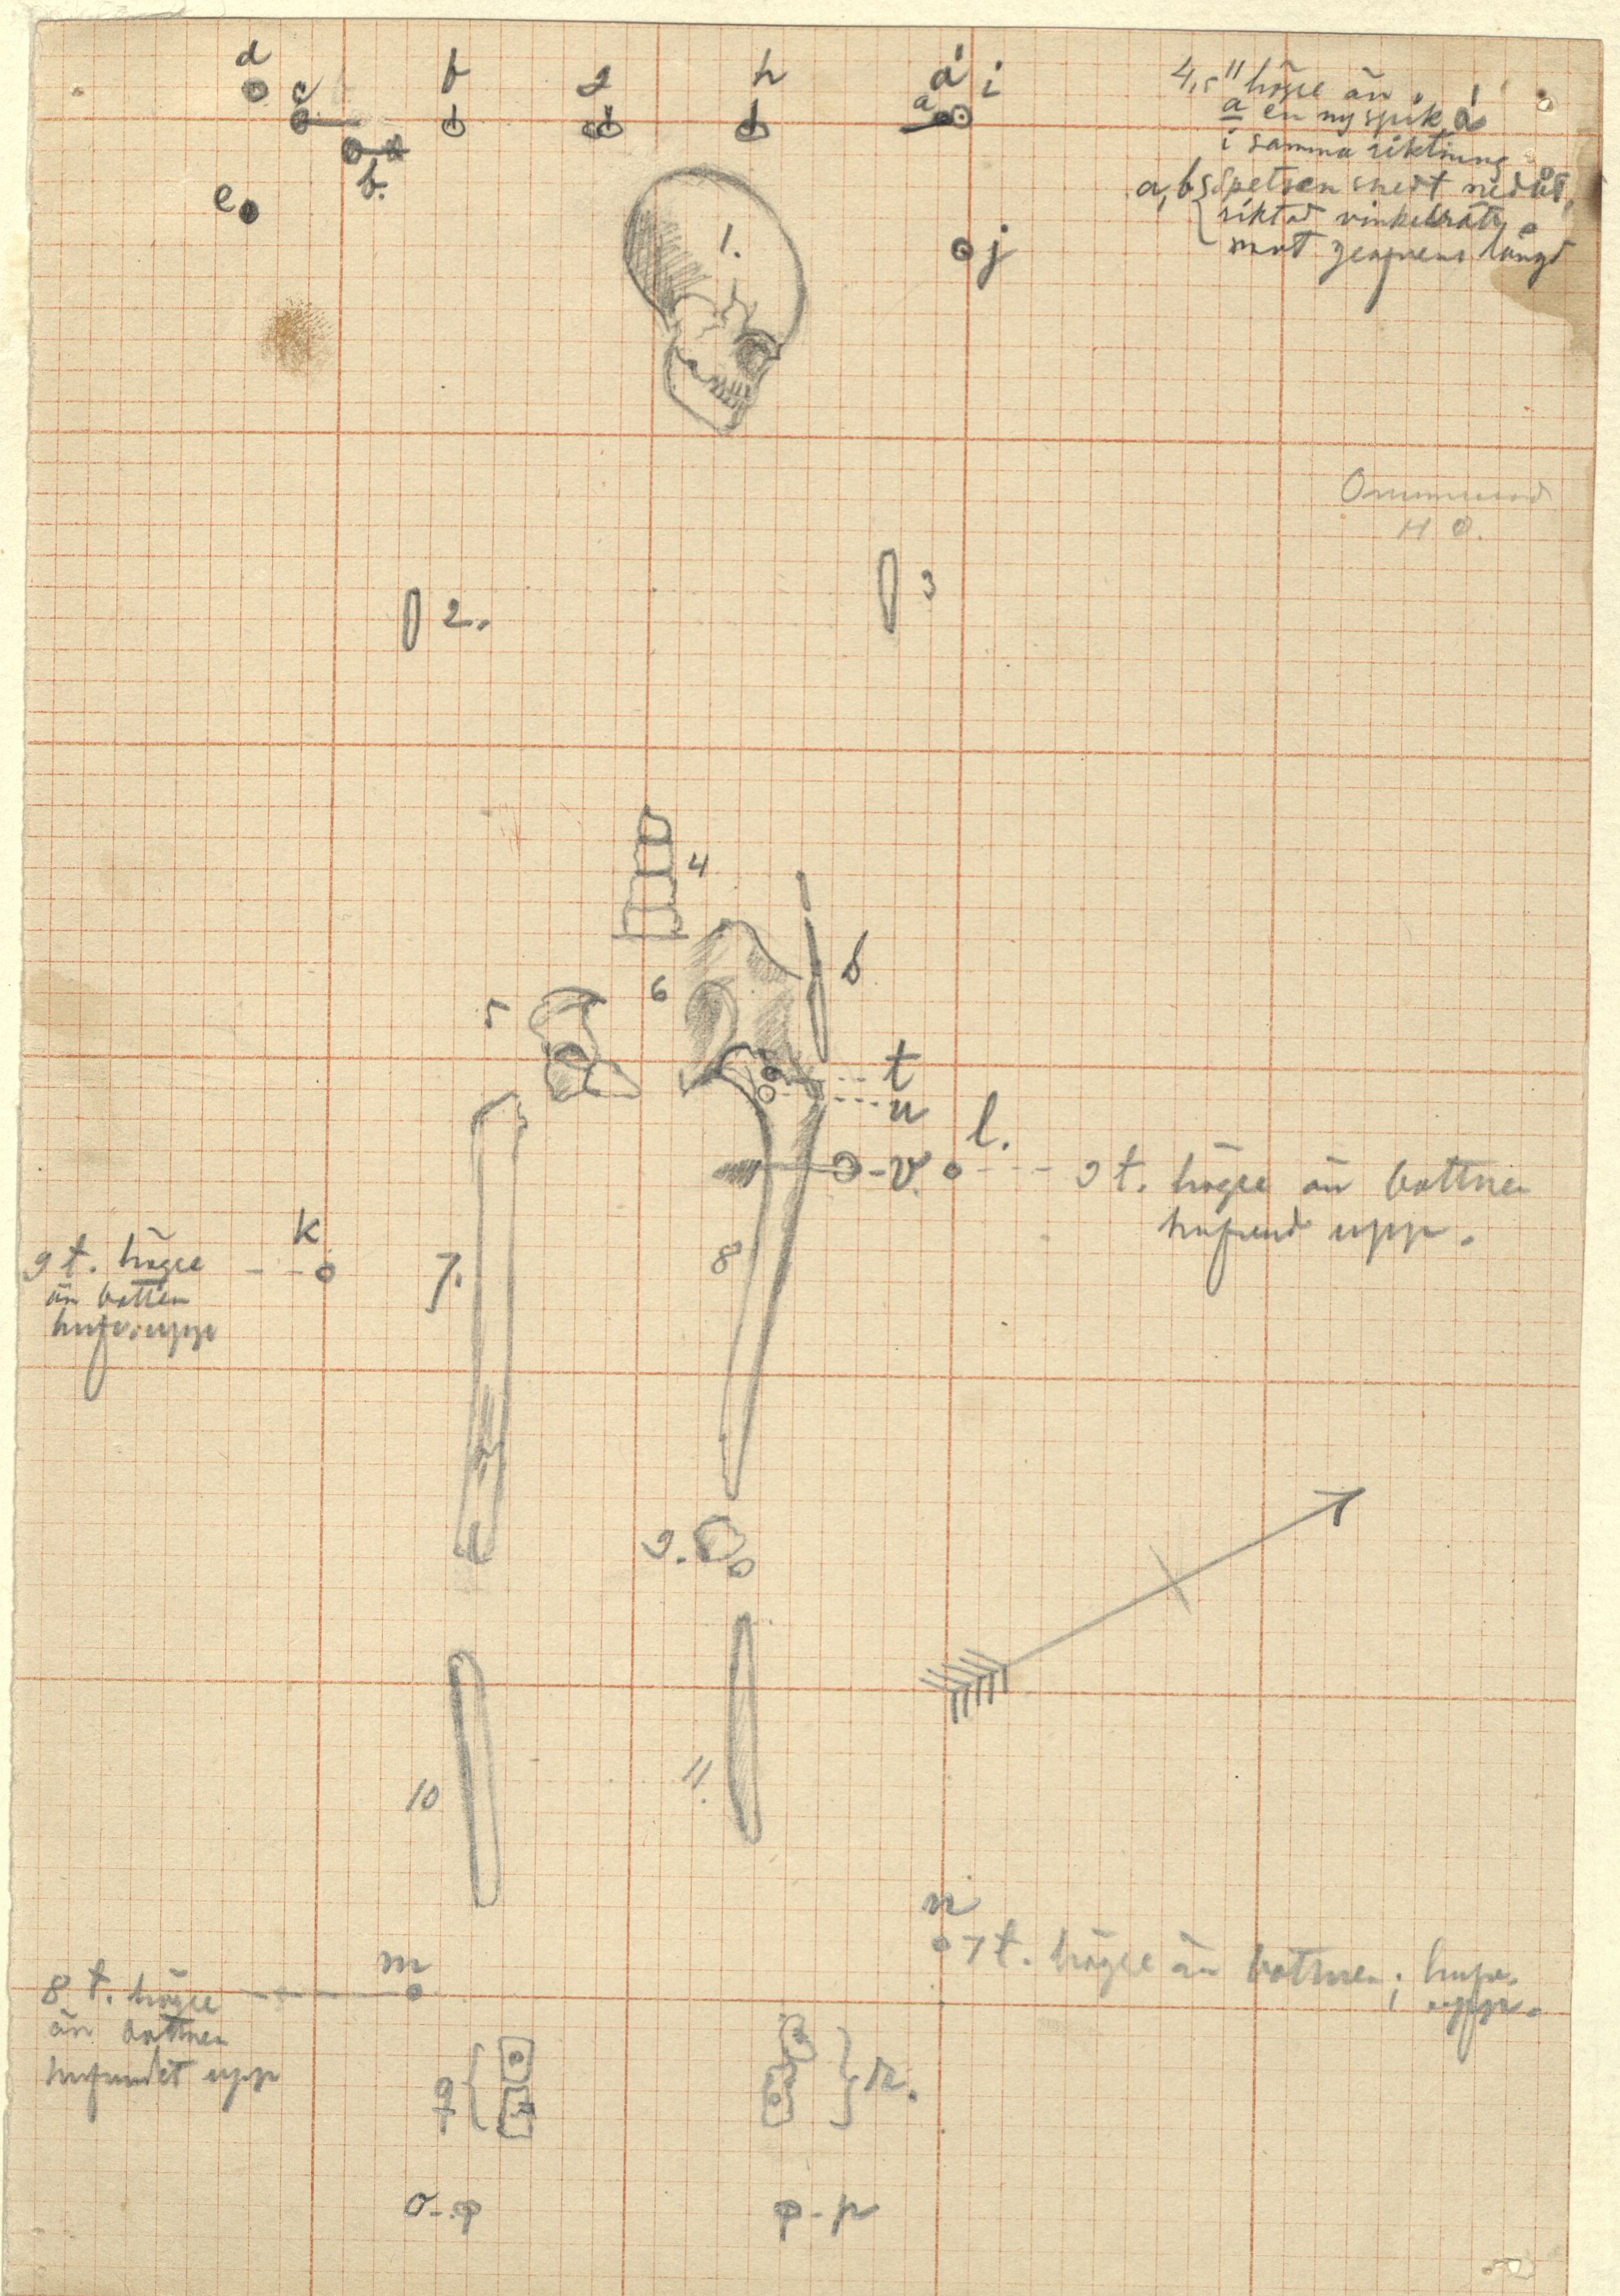 d
c
f
g
h
á
i
a
b.
e
j
4,5" högre än
a en ny spik á
i samma riktning
a, b, c, spetsen snedt nedåt,
riktad vinkelrätt
mot gropens längd
1.
H Ö.
2.
3
4
5
6
s
t
u
v.
l.
9 t. högre än bottnen
hufvud upp.
k
9 t. högre
än botten
hufv. upp
7.
8
9.
10
11.
n
7 t. högre än bottnen; hufv.
upp.
m
8 t. högre
än bottnen
hufvudet upp
q
r.
o
p